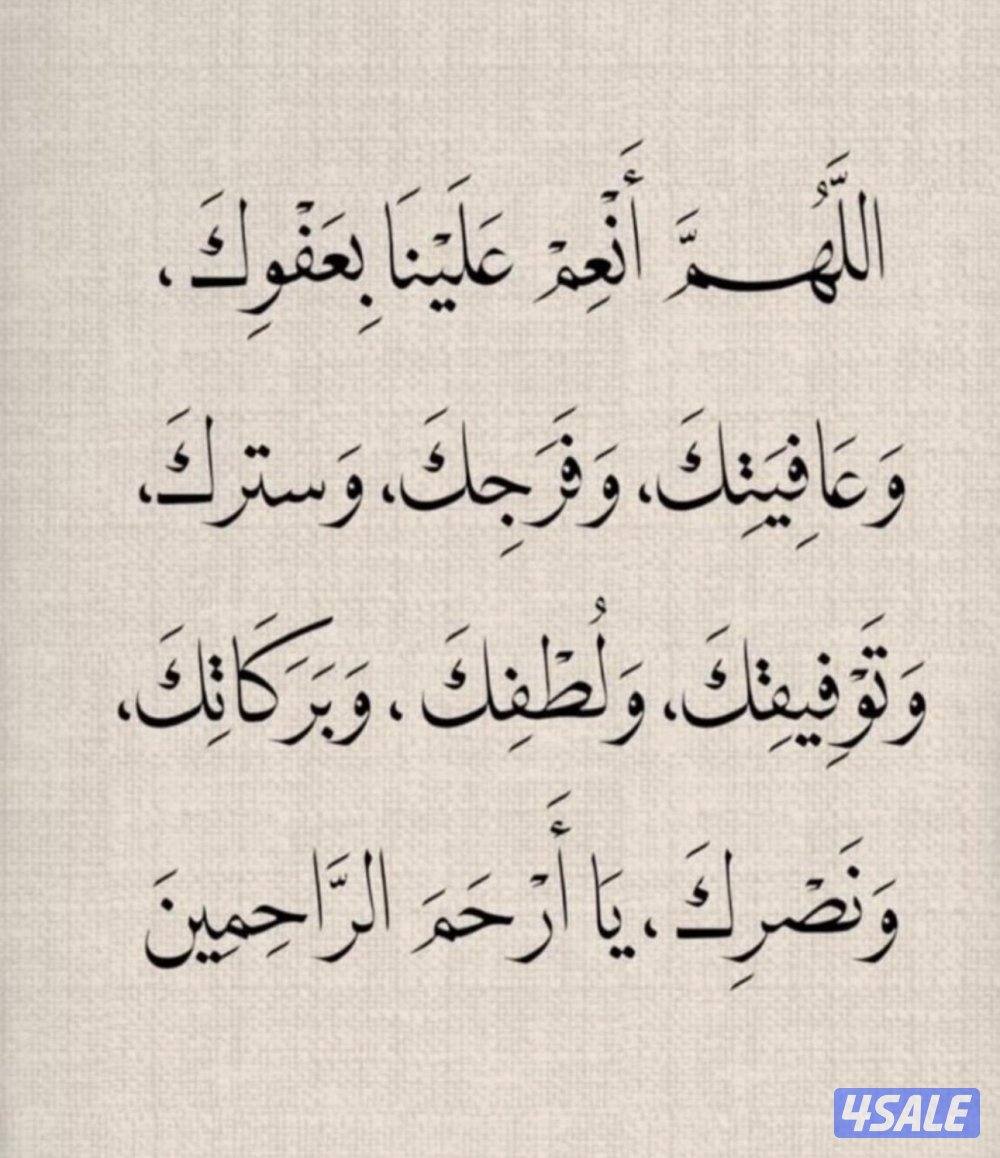 اللَّهُمَّ أَنْعِمْ عَلَيْنَا بِعَفْوِكَ ،
وَعَافِيَتِكَ، وَفَرَجِكَ، وَسترك،َ
وَتَوْفِيقِتكَ، وَلُطْفِكَ ، وَبَرَكَاتِكَ،
وَنَصْرِكَ ، يَا أَرْحَمَ الرَّاحِمِينَ
4SALE